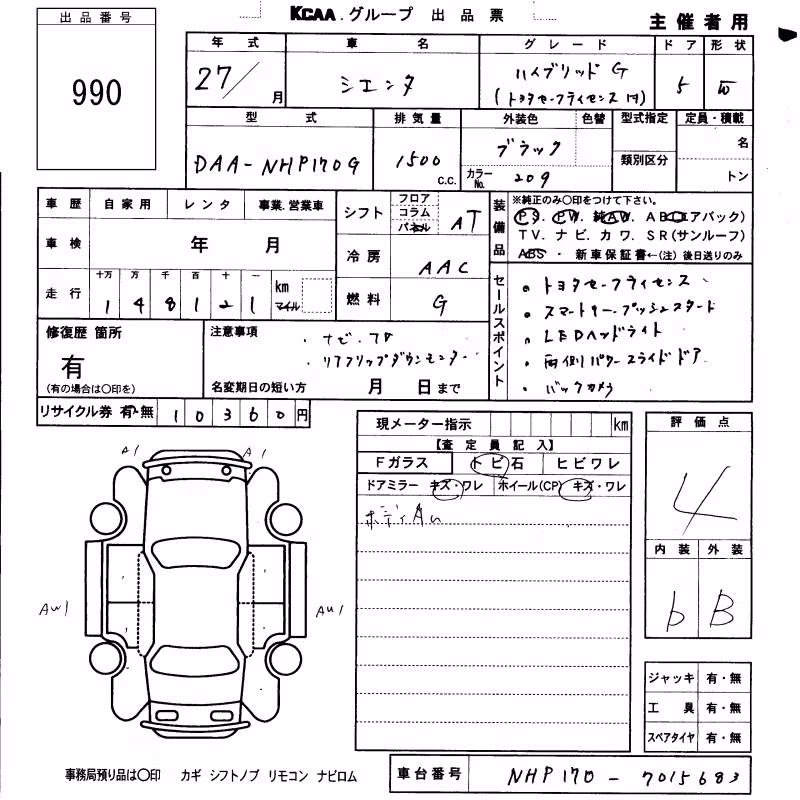 出品番号
990
KCAA.グループ 出品票
主催者用
年式 車名 グレード ドア 形状
27/ 月 シエンタ ハイブリッド G (トヨタセーフティセンス付) 5 W
型式 排気量 外装色 色替 型式指定 定員・積載
DAA-NHP170G 1500 C.C. ブラック カラーNo. 209 類別区分 名 トン
車歴 自家用 レンタ 事業.営業車
車検 年 月
走行 十万 万 千 百 十 一 km マイル
1 4 8 1 2 1
シフト フロア コラム パネル AT
冷房 AAC
燃料 G
装備品
※純正のみ〇印をつけて下さい。
P.S. P.W. 純AW A B(エアバック)
T V. ナビ. カワ. S R(サンルーフ)
ABS ・ 新車保証書←(注)後日送りのみ
セールスポイント
・トヨタセーフティセンス
・スマートキー・プッシュスタート
・LEDヘッドライト
・両側パワースライドドア
・バックカメラ
修復歴 箇所
有
(有の場合は〇印を)
注意事項
・ナビ・フロ
・リアフリップダウンモニター
名変期日の短い方 月 日まで
リサイクル券 有・無 10360円
現メーター指示 km
【査定員記入】
Fガラス トビ石 ヒビワレ
ドアミラー キズ・ワレ ホイール(CP) キズ・ワレ
評価点
4
内装 外装
b B
A1 A1
AW1 AU1
ジャッキ 有・無
工具 有・無
スペアタイヤ 有・無
事務局預り品は〇印 カギ シフトノブ リモコン ナビロム
車台番号 NHP170-7015683